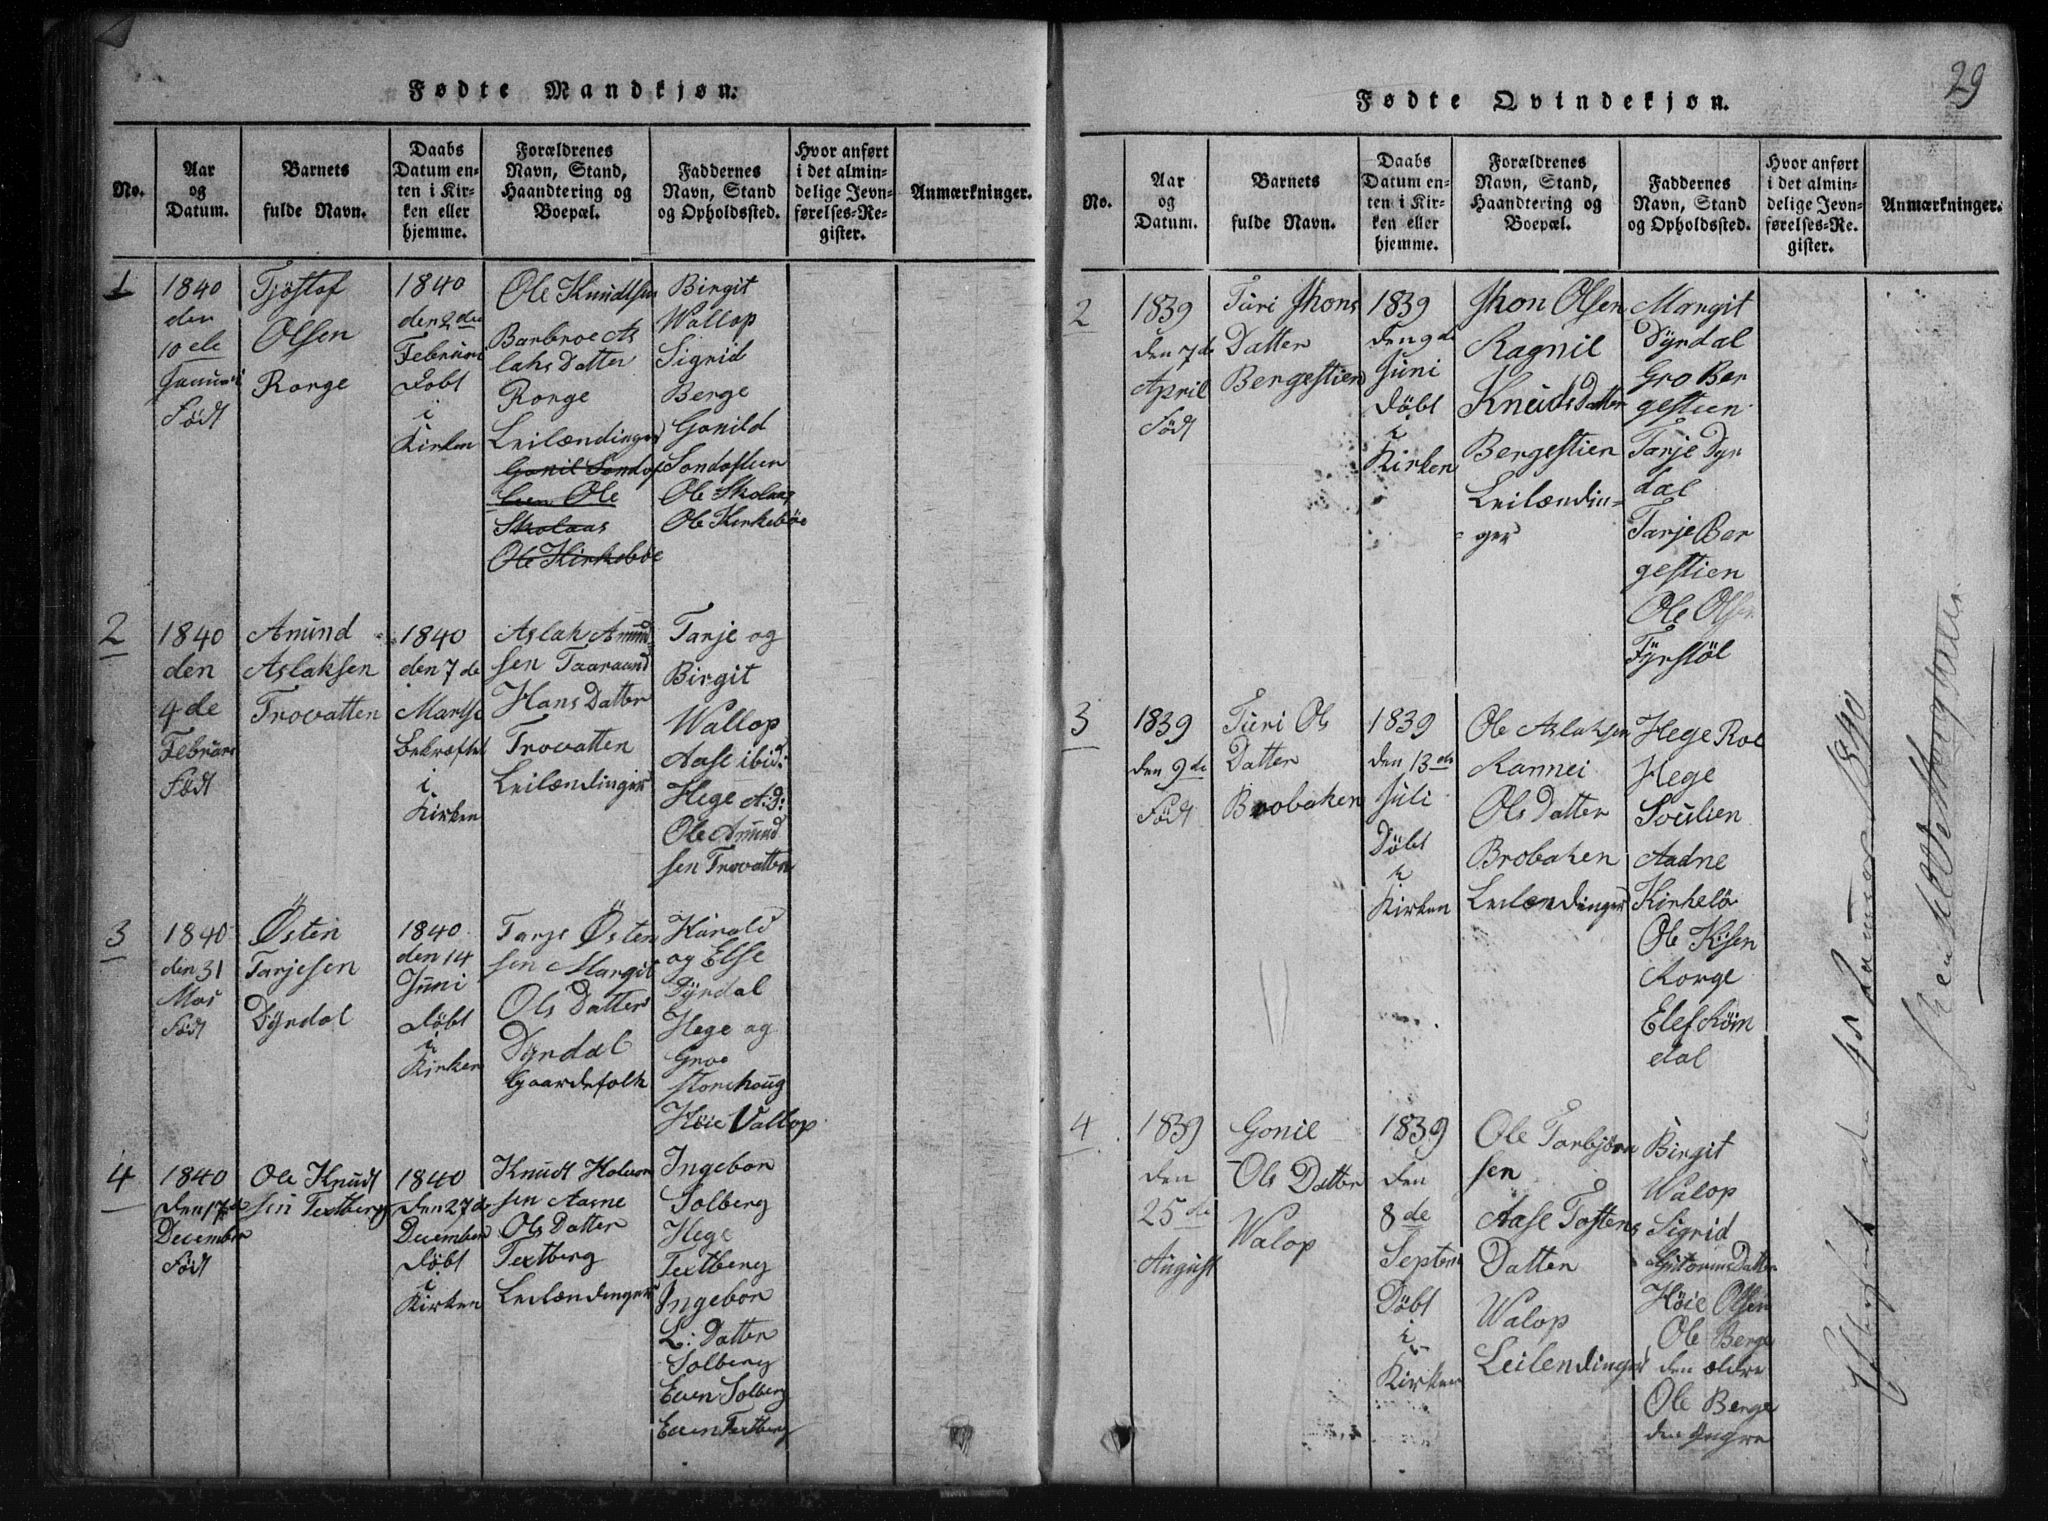 29
Fødte Mandkjøn.
No.
Aar
og
Datum.
Barnets
fulde Navn.
Daabs
Datum en-
ten i Kir-
ken eller
hjemme.
Forældrenes
Navn, Stand,
Haandtering og
Boepæl.
Faddernes
Navn, Stand
og Opholdssted.
Hvor anført
i det almin-
delige Jevn-
førelses-Re-
gister.
Anmærkninger.
1
1840
den
10de
Januari
Født
Tjøstof
Olsen
Rorge
1840
den 2den
Februari
Døbt
i
Kirken
Ole Knudtsen
Barbroe As
laks Datter
Rorge
Leilændinger
Gonil Sondos
Ole
Skolaas
Ole Kirkeboe
Birgit
Wallop
Sigrid
Berge
Gonild
Sondosteen
Ole Skolaas
Ole Kirkeböe
2
1840
den
4de
Februari
Født
Amund
Aslaksen
Trovatten
1840
den 7de
Martse
bekræftet
i
Kirken
Aslak Amund
sen Taaraand
Hans Datter
Trovatten
Leilændinger
Tarje og
Birgit
Wallop
Aase ibid:
Hege
Ole Amund
sen Trovatten
3
1840
den 31
Mai
Født
Østen
Tarjesen
Dÿrdal
1840
den 14
Juni
Døbt
i
Kirken
Tarje Østen
sen Margit
Ols Datter
Dÿrdal
Gaardefolk
Harald
og Else
Dÿrdal
Hege og
Groe
Storehoug
Høie Vallop
4
1840
Den 17de
December
Født
Ole Knudt
sen Textberg
1840
Den 27de
December
Døbt
i
Kirken
Knudt Halvor
sen Aarne
Ols Datter
Textberg
Leilændinger
Ingebor
Solberg
Hege
Textberg
Ingebor
L: Datter
Solberg
Even Solberg
Even Textberg
Fødte Qvindekjøn.
No.
Aar
og
Datum.
Barnets
fulde Navn.
Daabs
Datum en-
ten i Kir-
ken eller
hjemme.
Forældrenes
Navn, Stand,
Haandtering og
Boepæl.
Faddernes
Navn, Stand
og Opholdssted.
Hvor anført
i det almin-
delige Jevn-
førelses-Re-
gister.
Anmærkninger.
2
1839
den 7de
April
Født
Turi Jhons
Datter
Bergestien
1839
den 9de
Juni
Døbt
i
Kirken
Jhon Olsen
Ragnil
Knuds Datter
Bergestien
Leilændin-
ger
Margit
Dÿrdal
Gro Ber
gestien
Tarje Dÿr
dal
Tarje Ber
gestien
Ole Olsen
Fÿrstøl
3
1839
den 9de
Født
Turi Ols
Datter
Brobaken
1839
den 13de
Juli
Døbt
i
Kirken
Ole Aslaksen
Rannei
Ols Datter
Brobaken
Leilændinger
Hege Roe
Hege
Soulien
Aadne
Kirkebø
Ole
Rorge
Elef
dal
4
1839
den
25de
August
Gonil
Ols Datter
Walop
1839
den
8de
Septem
Døbt
i
Kirken
Ole Torbjørn
sen
Aase Tostens
Datter
Walop
Leilendinger
Birgit
Walop
Sigrid
Datter
Høie Olsen
Ole Berge
den ældre
Ole Berge
den yngre
1840